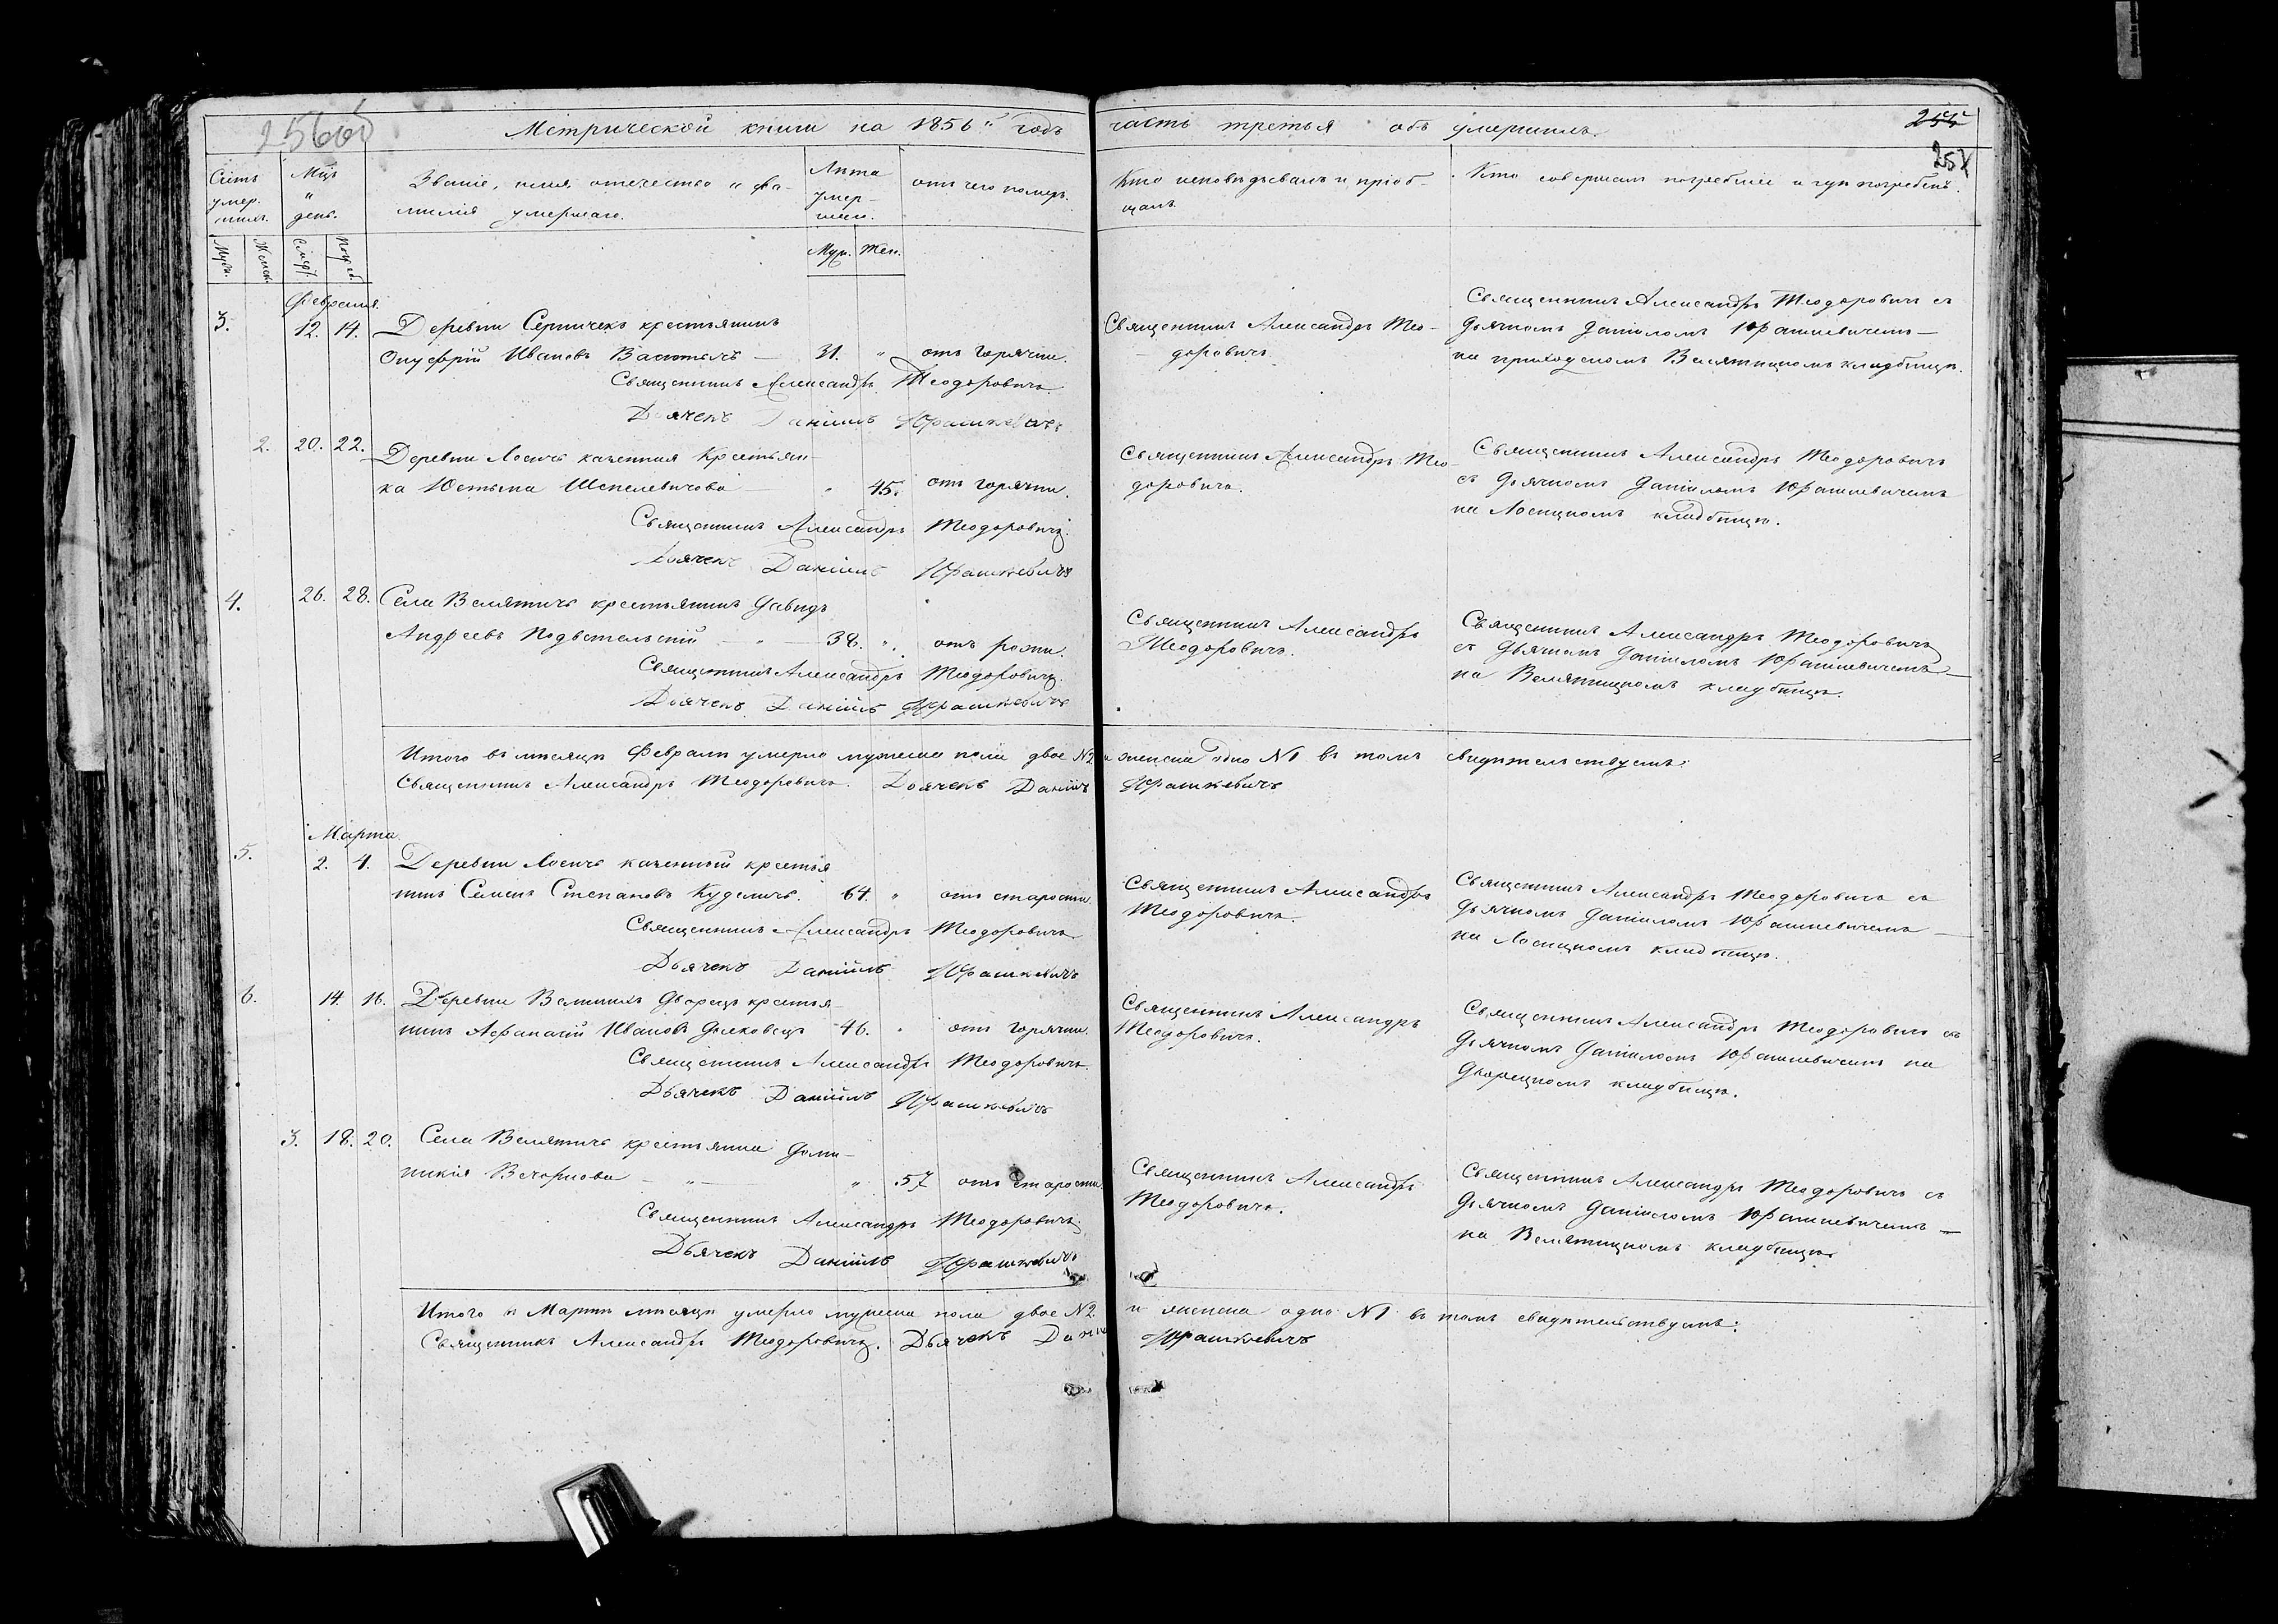 Метрической книги на 1856й годъ часть третья объ умершихъ.
255
257
Счетъ умер-шихъ.
Мцъ и день.
Званіе, имя, отечество и фа-
милія умершаго.
Лѣта умер-шаго.
отъ чего померъ.
Кто исповѣдывалъ и пріоб-
щалъ.
Кто совершалъ погребеніе и гдѣ погребенъ.
Муж.
Женск.
Смерт.
Погреб.
Муж. Жен.
Февраля.
3. 12. 14. Деревни Серничекъ крестьянинъ
Онуфрій Ивановъ — 31. " отъ горячки.
Священникъ Александръ Теодоровичъ.
Дьячекъ Даніилъ Юрашкевичъ
Священникъ Александръ Тео-
доровичъ.
Священникъ Александръ Теодоровичъ съ
дьячкомъ Даніиломъ Юрашкевичемъ —
на приходскомъ Велятицкомъ кладбищѣ.
2. 20. 22. Деревни Лосичъ казенная Крестьян-
ка Юстына Шепелевичова " 45. отъ горячки.
Священникъ Александръ Теодоровичъ.
Дьячекъ Даніилъ Юрашкевичъ
Священникъ Александръ Тео-
доровичъ.
Священникъ Александръ Теодоровичъ
съ дьячкомъ Даніиломъ Юрашкевичемъ
на Лосицкомъ кладбищѣ.
4. 26. 28. Села Велятичъ крестьянинъ Давидъ
Андреевъ — " 38. " отъ рожи.
Священникъ Александръ Теодоровичъ.
Дьячекъ Даніилъ Юрашкевичъ
Священникъ Александръ
Теодоровичъ.
Священникъ Александръ Теодоровичъ
съ дьячкомъ Даніиломъ Юрашкевичемъ —
на Велятицкомъ кладбищѣ.
Итого въ мѣсяцѣ Февралѣ умерло мужеска пола двое №2 и женска одно №1 въ томъ свидѣтельствуемъ:
Священникъ Александръ Теодоровичъ. Дьячекъ Даніилъ Юрашкевичъ
Марта
5. 2. 4. Деревни Лосичъ казенный крестья
нинъ Семенъ Степановъ Куделичъ. 64. " отъ старости.
Священникъ Александръ Теодоровичъ
Дьячекъ Даніилъ Юрашкевичъ
Священникъ Александръ
Теодоровичъ.
Священникъ Александръ Теодоровичъ съ
дьячкомъ Даніиломъ Юрашкевичемъ —
на Лосицкомъ кладбищѣ.
6. 14. 16. Деревни Дворецъ крестья-
нинъ Афанасій Ивановъ 46. " отъ горячки.
Священникъ Александръ Теодоровичъ.
Дьячекъ Даніилъ Юрашкевичъ
Священникъ Александръ
Теодоровичъ.
Священникъ Александръ Теодоровичъ съ
дьячкомъ Даніиломъ Юрашкевичемъ на
Дворецкомъ кладбищѣ.
3. 18. 20. Села Велятичъ крестьянка Доми-
никія — " — " 57 отъ старости.
Священникъ Александръ Теодоровичъ.
Дьячекъ Даніилъ Юрашкевичъ
Священникъ Александръ
Теодоровичъ.
Священникъ Александръ Теодоровичъ съ
дьячкомъ Даніиломъ Юрашкевичемъ —
на Велятицкомъ кладбищѣ.
Итого въ Мартѣ мѣсяцѣ умерло мужеска пола двое №2. и женска одно №1 въ томъ свидѣтельствуемъ:
Священникъ Александръ Теодоровичъ. Дьячекъ Даніилъ Юрашкевичъ